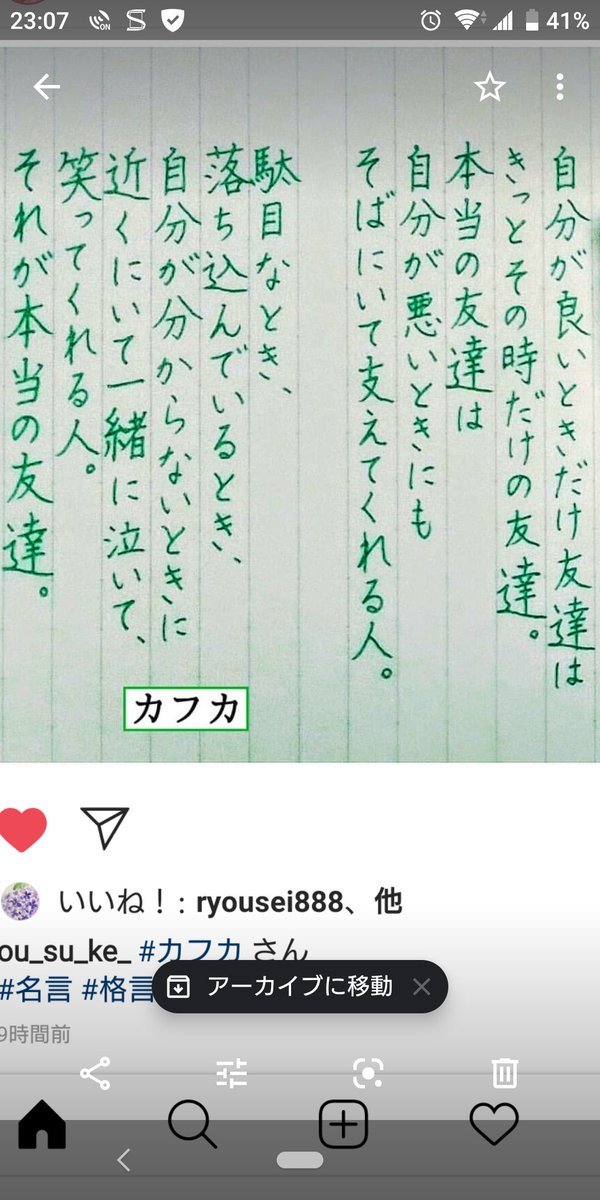 23:07
ON
41%
自分が良いときだけ友達は
きっとその時だけの友達。
本当の友達は
自分が悪いときにも
そばにいて支えてくれる人。
駄目なとき、
落ち込んでいるとき、
自分が分からないときに
近くにいて一緒に泣いて、
笑ってくれる人。
それが本当の友達。
カフカ
いいね！: ryousei888、他
ou_su_ke_ #カフカ さん
#名言 #格言
アーカイブに移動
9時間前